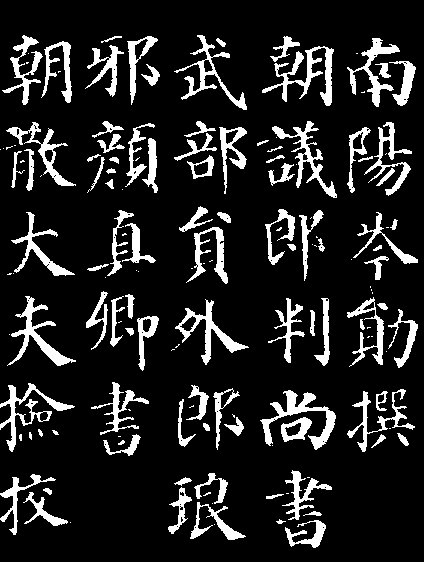 南陽岑勛撰
朝議郎判尚書
武部員外郎琅
邪顏真卿書
朝散大夫撿校